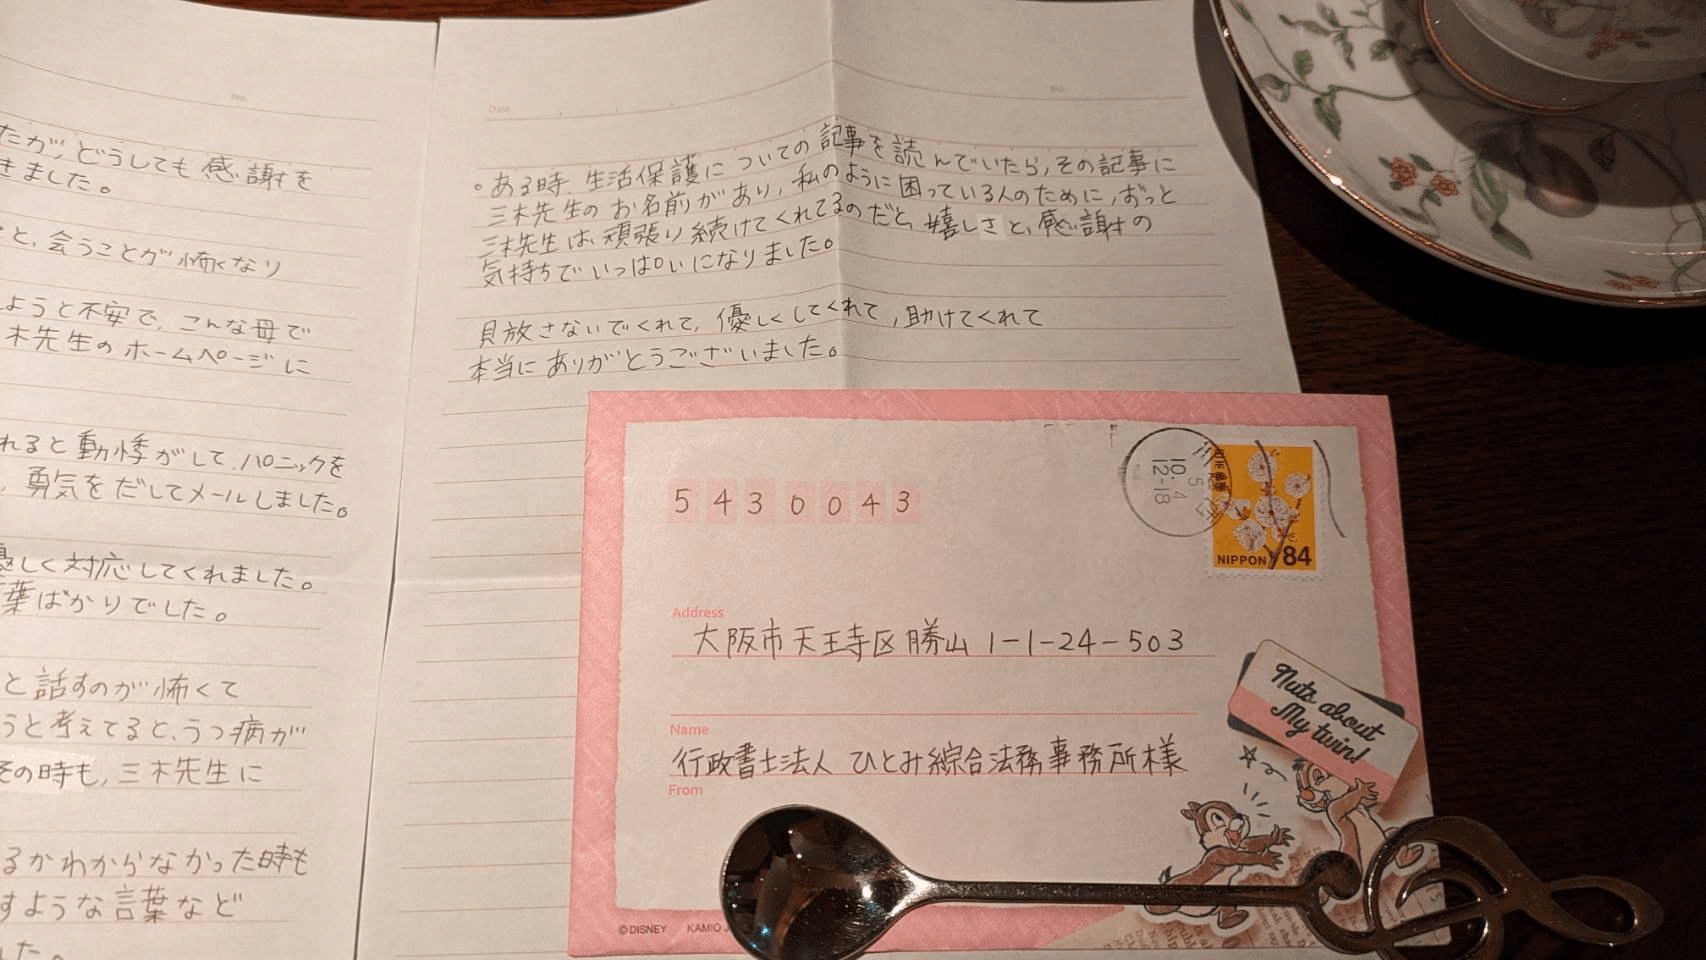 No.
たが、どうしても感謝を
きました。
と、会うことが怖くなり
ようと不安で、こんな母で
木先生のホームページに
れると動悸がして、パニックを
、勇気をだしてメールしました。
優しく対応してくれました。
葉ばかりでした。
と話すのが怖くて
うと考えてると、うつ病が
その時も、三木先生に
るかわからなかった時も
すような言葉など
した。
Date
No.
。ある時、生活保護についての記事を読んでいたら、その記事に
三木先生のお名前があり、私のように困っている人のために、ずっと
三木先生は、頑張り続けてくれてるのだと、嬉しさと、感謝の
気持ちでいっぱいになりました。
見放さないでくれて、優しくしてくれて、助けてくれて
本当にありがとうございました。
5430043
10.4
12-18
NIPPON 84
Address
大阪市天王寺区勝山1-1-24-503
Name
行政書士法人 ひとみ綜合法務事務所様
From
Nuts about
My twin!
©DISNEY KAMIO J